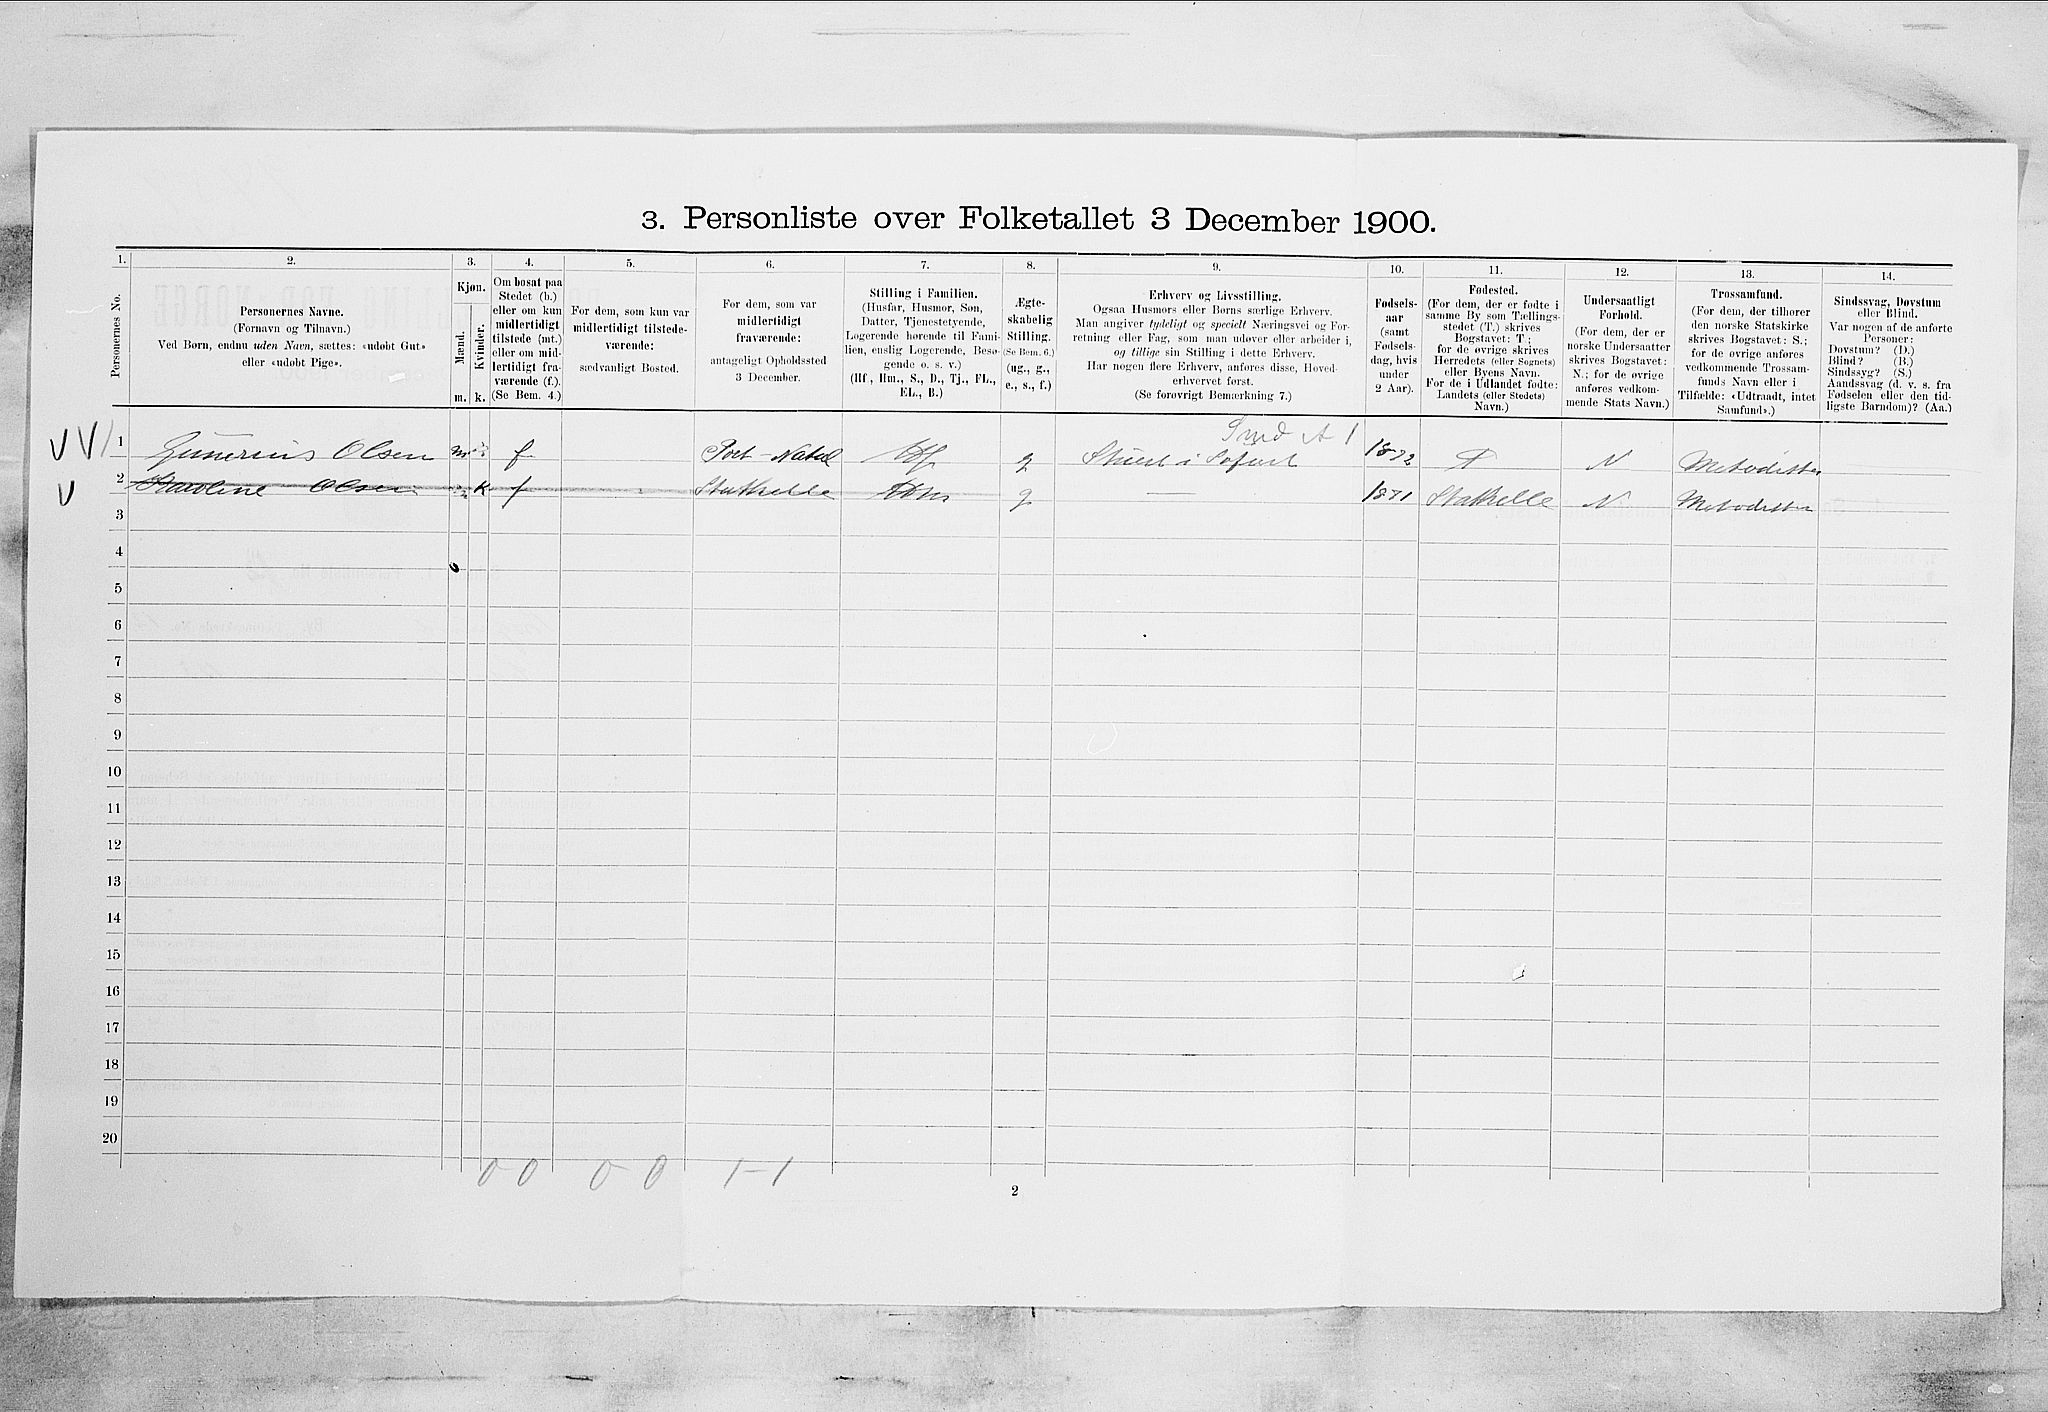 3. Personliste over Folketallet 3 December 1900.
1. 2. 3. 4. 5. 6. 7. 8. 9. 10. 11. 12. 13. 14.
Personernes No.
Personernes Navne.
(Fornavn og Tilnavn.)
Ved Børn, endnu uden Navn, sættes: «udøbt Gut»
eller «udøbt Pige».
Kjøn.
Mænd.
Kvinder.
m. k.
Om bosat paa
Stedet (b.)
eller om kun
midlertidigt
tilstede (mt.)
eller om mid-
lertidigt fra-
værende (f.).
(Se Bem. 4.)
For dem, som kun var
midlertidigt tilstede-
værende:
sædvanligt Bosted.
For dem, som var
midlertidigt
fraværende:
antageligt Opholdssted
3 December.
Stilling i Familien.
(Husfar, Husmor, Søn,
Datter, Tjenestetyende,
Logerende hørende til Fami-
lien, enslig Logerende, Besø-
gende o. s. v.)
(Hf., Hm., S., D., Tj., FL.,
EL., B.)
Ægte-
skabelig
Stilling.
(Se Bem. 6.)
(ug., g.,
e., s., f.)
Erhverv og Livsstilling.
Ogsaa Husmors eller Børns særlige Erhverv.
Man angiver tydeligt og specielt Næringsvei og For-
retning eller Fag, som man udøver eller arbeider i,
og tillige sin Stilling i dette Erhverv.
Har nogen flere Erhverv, anføres disse, Hoved-
erhvervet først.
(Se forøvrigt Bemærkning 7.)
Fødsels-
aar
(samt
Fødsels-
dag, hvis
under
2 Aar).
Fødested.
(For dem, der er fødte i
samme By som Tællings-
stedet (T.) skrives
Bogstavet: T;
for de øvrige skrives
Herredets (eller Sognets)
eller Byens Navn.
For de i Udlandet fødte:
Landets (eller Stedets)
Navn.)
Undersaatligt
Forhold.
(For dem, der er
norske Undersaatter
skrives Bogstavet:
N.; for de øvrige
anføres vedkom-
mende Stats Navn.)
Trossamfund.
(For dem, der tilhører
den norske Statskirke
skrives Bogstavet: S.;
for de øvrige anføres
vedkommende Trossam-
funds Navn eller i
Tilfælde: «Udtraadt, intet
Samfund».)
Sindssvag, Døvstum
eller Blind.
Var nogen af de anførte
Personer:
Døvstum? (D.)
Blind? (B.)
Sindssyg? (S.)
Aandssvag (d. v. s. fra
Fødselen eller den tid-
ligste Barndom)? (Aa.)
1 Gunerius Olsen m f Port-Natal Hf g 1872 T N Metodister
2 Karoline Olsen k f Stathelle Hm g — 1871 Stathelle N Metodister
3
4
5
6
7
8
9
10
11
12
13
14
15
16
17
18
19
20
0 0 0 - 0 1 - 1
2